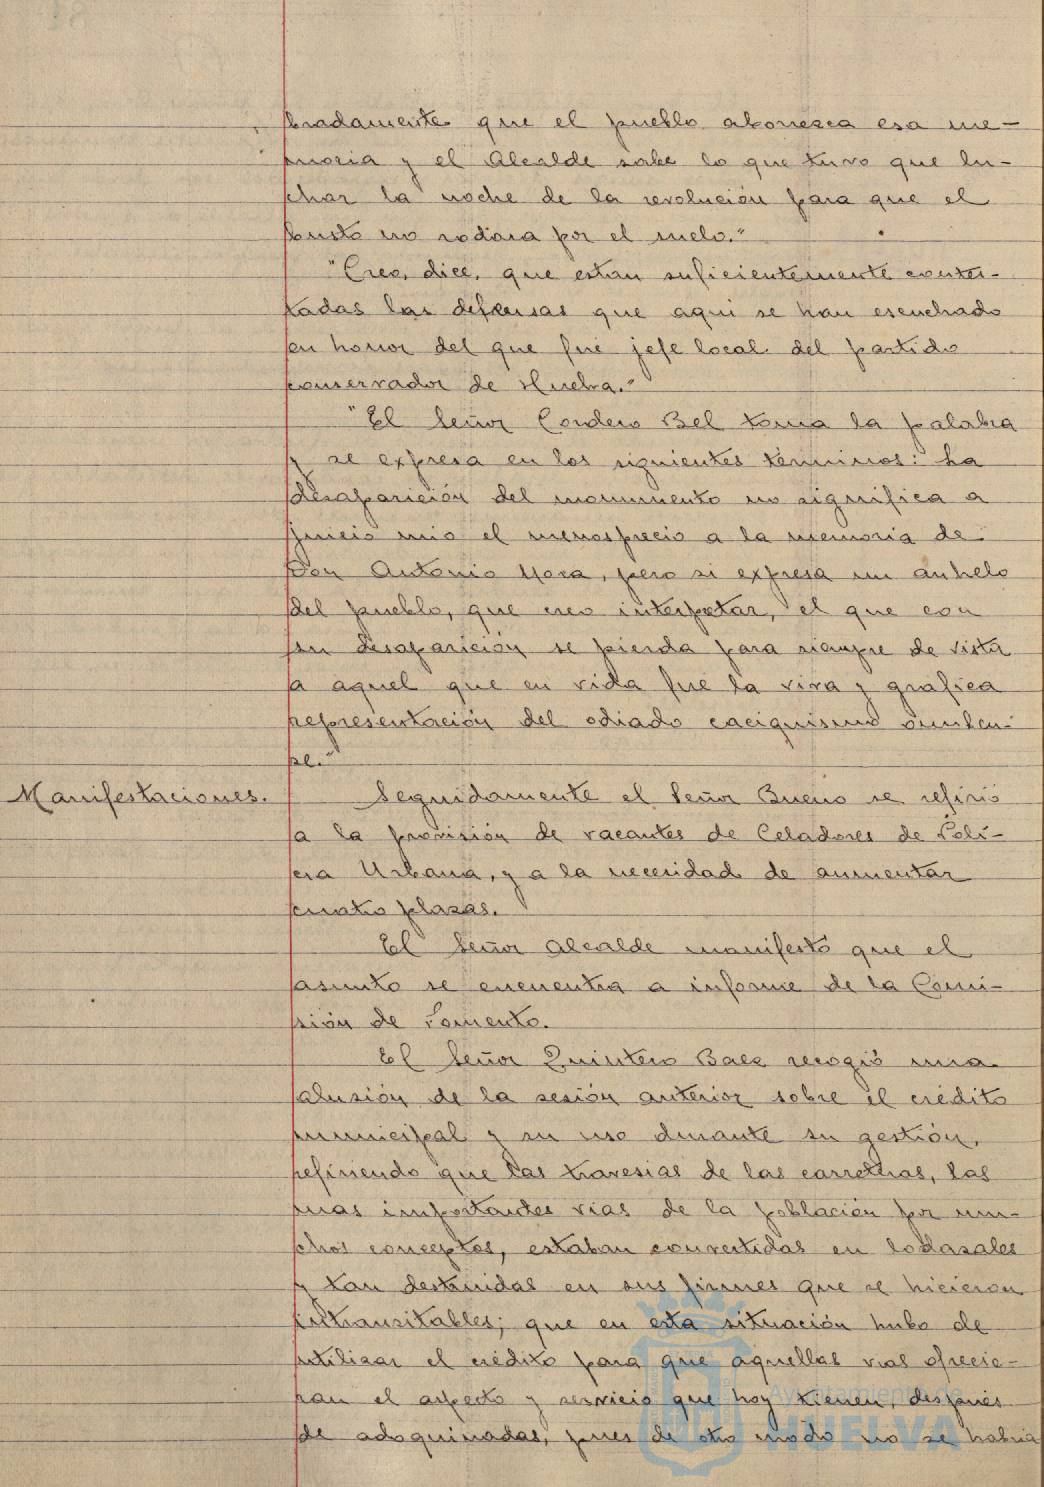 bradamente que el pueblo aborrezca esa me-
moria y el Alcalde sabe lo que tuvo que lu-
char la noche de la revolución para que el
busto no rodara por el suelo."
"Creo, dice, que estan suficientemente contes-
tadas las defensas que aqui se han escuchado
en honor del que fué jefe local del partido
conservador de Huelva."
"El Señor Cordero Bel toma la palabra
y se expresa en los siguientes términos: La
desaparición del monumento no significa a
juicio mio el menosprecio a la memoria de
Don Antonio Mora, pero si expresa un anhelo
del pueblo, que creo interpretar, el que con
su desaparición se pierda para siempre de vista
a aquel que en vida fue la viva y grafica
representación del odiado caciquismo onuben-
se."
Manifestaciones.
Seguidamente el Señor Bueno se refirió
a la provisión de vacantes de Celadores de Poli-
cia Urbana, y a la necesidad de aumentar
cuatro plazas.
El Señor Alcalde manifestó que el
asunto se encuentra a informe de la Comi-
sión de Fomento.
El Señor Quintero Baez recogió una
alusión de la sesión anterior sobre el crédito
municipal y su uso durante su gestión,
refiriendo que las travesias de las carreteras, las
mas importantes vias de la población por mu-
chos conceptos, estaban convertidas en lodazales
y tan destruidas en sus firmes que se hicieron
intransitables; que en esta situación hubo de
utilizar el crédito para que aquellas vias ofrecie-
ran el aspecto y servicio que hoy tienen, después
de adoquinadas, pues de otro modo no se habria
Ayuntamiento de
HUELVA